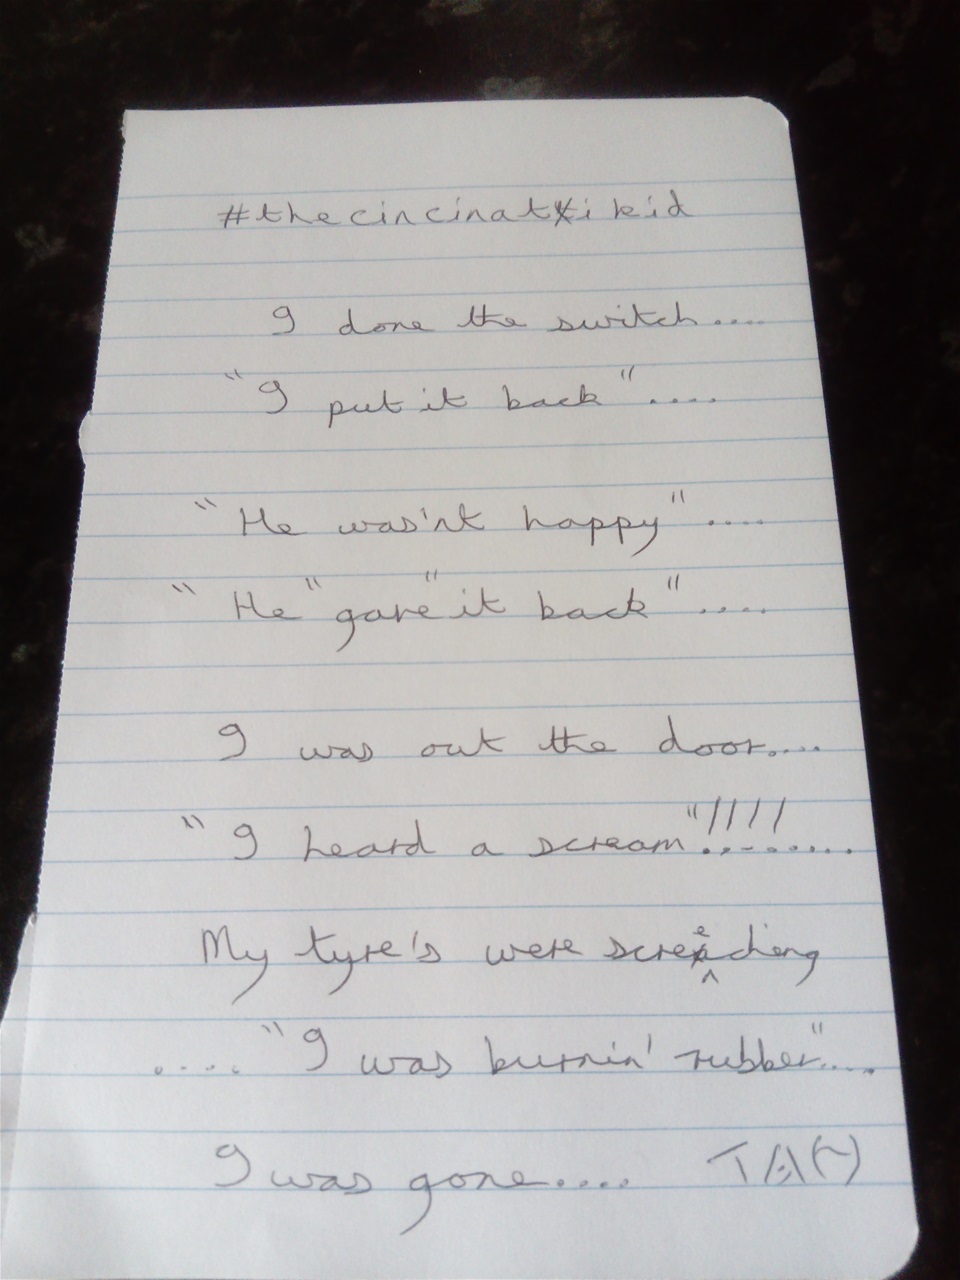 #thecincinati kid
I done the switch....
"I put it back"....
"He was'nt happy"....
"He" gave "it back"....
I was out the door....
"I heard a scream"!!!!.........
My tyre's were screeching
...."I was burnin' rubber"....
I was gone....